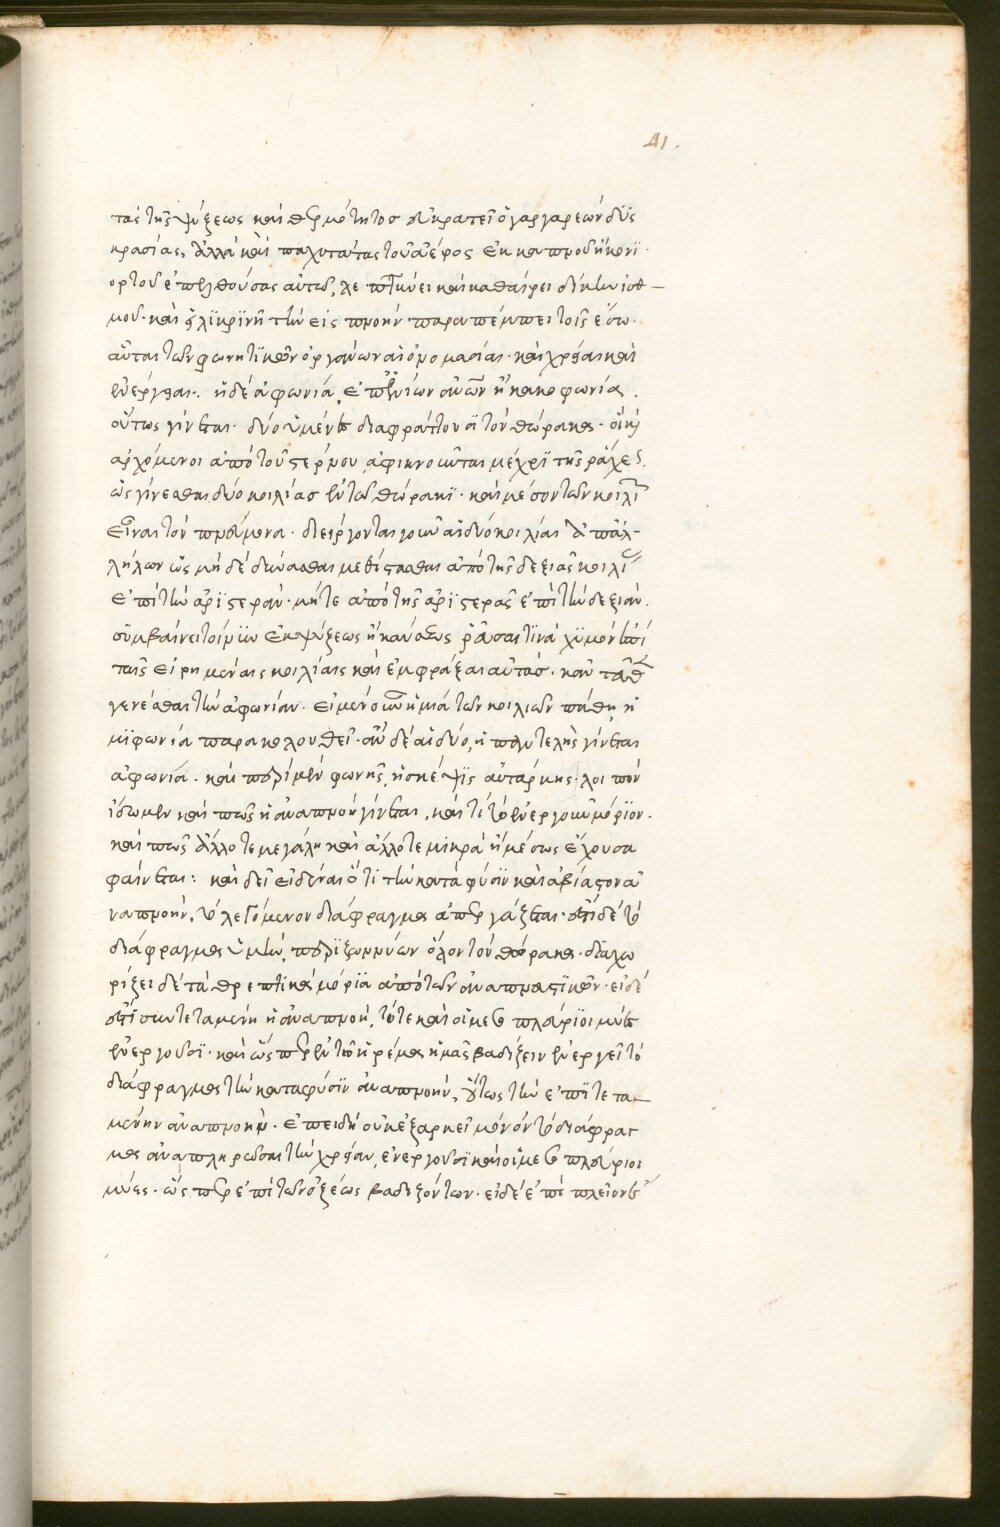 41.
τὰς τῆς ψύξεως καὶ θερμότητος συγκρατεῖ ὁ γαργαρεὼν δυσ
κρασίας, ἀλλὰ καὶ παχυτάτας τοῦ ἀέρος ἐκ καπνοῦ ἢ κονϊ
ορτοῦ ἐπελθούσας αὐτῶ, λεπτύνει καὶ καθαίρει
μοῦ. καὶ εἰλικρινῆ τὴν εἰς πνοὴν παραπέμπει τοῖς ἔσω.
αὗται τῶν φωνητϊκῶν ὀργάνων αἱ ὀνομασίαι. καὶ χρεῖαι καὶ
ἐνέργειαι. ἡ δὲ ἀφωνία, ἢ κακοφωνία.
οὕτως γίνεται. δύο ὑμένες διαφράττουσϊ τὸν θώρακα. οἵτινες
ἀρχόμενοι ἀπὸ τοῦ στέρνου, ἀφικνοῦνται μέχρϊ τῆς ῥάχεως,
ὡς γίνεσθαι δύο κοιλίας ἐν τῶ θώρακϊ. καὶ μέσον τῶν κοιλιῶν
εἶναι τὸν πνεύμονα. διείργονται γοῦν αἱ δύο κοιλίαι ἀπ' ἀλ
λήλων ὡς μὴ δὲ δύνασθαι μεθίστασθαι ἀπὸ τῆς δεξιᾶς κοιλίας
ἐπὶ τὴν ἀρϊστεράν. μήτε ἀπὸ τῆς ἀρϊστερᾶς ἐπὶ τὴν δεξιάν.
συμβαίνει τοίνυν ἐκ ψύξεως ἢ καύσεως ῥεῦσαι τϊνὰ χϋμὸν ἐπὶ
ταῖς εἰρημέναις κοιλίαις καὶ ἐμφράξαι αὐτάς. κἀν
γενέσθαι τὴν ἀφωνίαν. εἰ μὲν οὖν ἡ μία τῶν κοιλιῶν πάθη, ἡ
μϊφωνία παρακολουθεῖ. ἂν δὲ αἱ δύο, ἡ παντελὴς γίνεται
ἀφωνία. καὶ περὶ μὲν φωνῆς, ἡ σκέψϊς αὐτάρκης. λοιπὸν
ἴδωμεν καὶ πῶς ἡ ἀναπνοὴ γίνεται, καὶ τί τὸ ἐνεργοῦν μόρϊον.
καὶ πῶς ἄλλοτε μεγάλη καὶ ἄλλοτε μικρὰ ἢ μέσως ἔχουσα
φαίνεται: καὶ δεῖ εἰδέναι ὅτϊ τὴν κατὰ φύσϊν καὶ ἀβίαστον ἀ
ναπνοήν, τὸ λεγόμενον διάφραγμα ἀπεργάζεται. ἐστὶ δὲ τὸ
διάφραγμα ὑμὴν, περϊζωννύων ὅλον τὸν θώρακα. διαχω
ρίζει δὲ τὰ θρεπτϊκὰ μόρϊα ἀπὸ τῶν ἀναπνευστϊκῶν. εἰ δέ
ἐστϊ συντεταμένη ἡ ἀναπνοή, τότε καὶ οἱ μεσοπλεύρϊοι μύες
ἐνεργοῦσϊ. καὶ ὥσπερ ἐν τῶ ἠρέμα ἡμᾶς βαδίζειν ἐνεργεῖ τὸ
διάφραγμα τὴν κατὰ φύσϊν ἀναπνοήν, οὕτως τὴν ἐπϊτετα
μένην ἀναπνοὴν. ἐπειδὴ οὐκ ἐξαρκεῖ μόνον τὸ διάφραγ
μα ἀναπληρῶσαι τὴν χρείαν, ἐνεργοῦσϊ καὶ οἱ μεσοπλεύριοι
μύες. ὥσπερ ἐπὶ τῶν ὀξέως βαδιζόντων. εἰ δὲ ἐπὶ πλεῖον